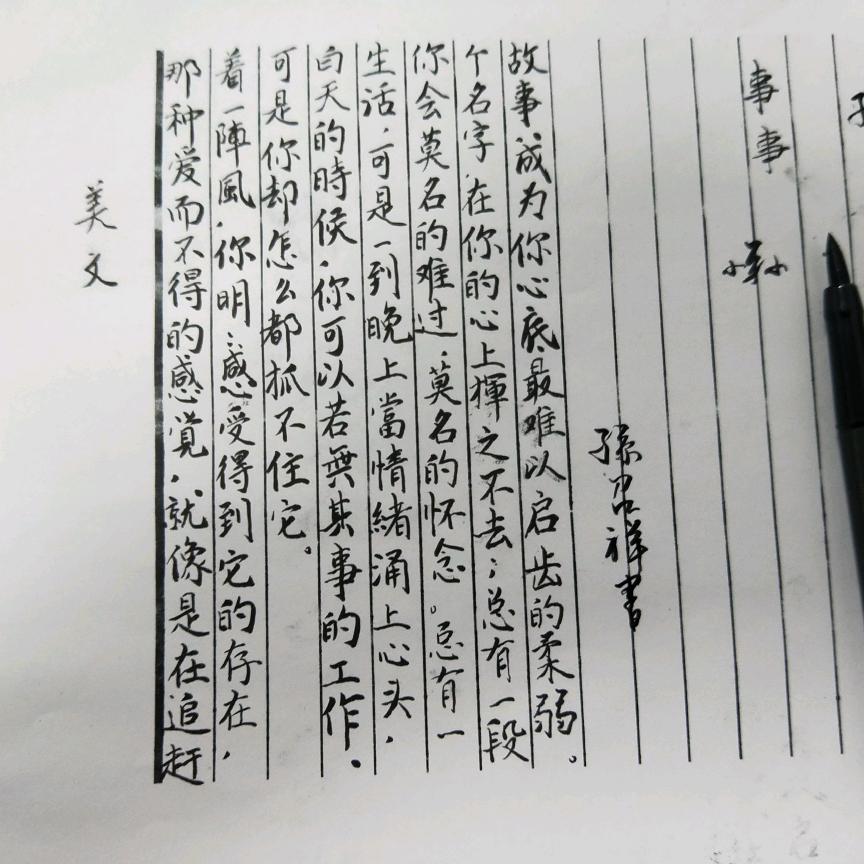 美文
那种爱而不得的感觉,就像是在追赶
着一陣風,你明〻感受得到它的存在,
可是你却怎么都抓不住它。
白天的時候,你可以若無其事的工作、
生活,可是一到晚上當情緒涌上心头,
你会莫名的难过,莫名的怀念。总有一
个名字,在你的心上揮之不去;总有一段
故事,成为你心底最难以启齿的柔弱。
孫召祥書
事事